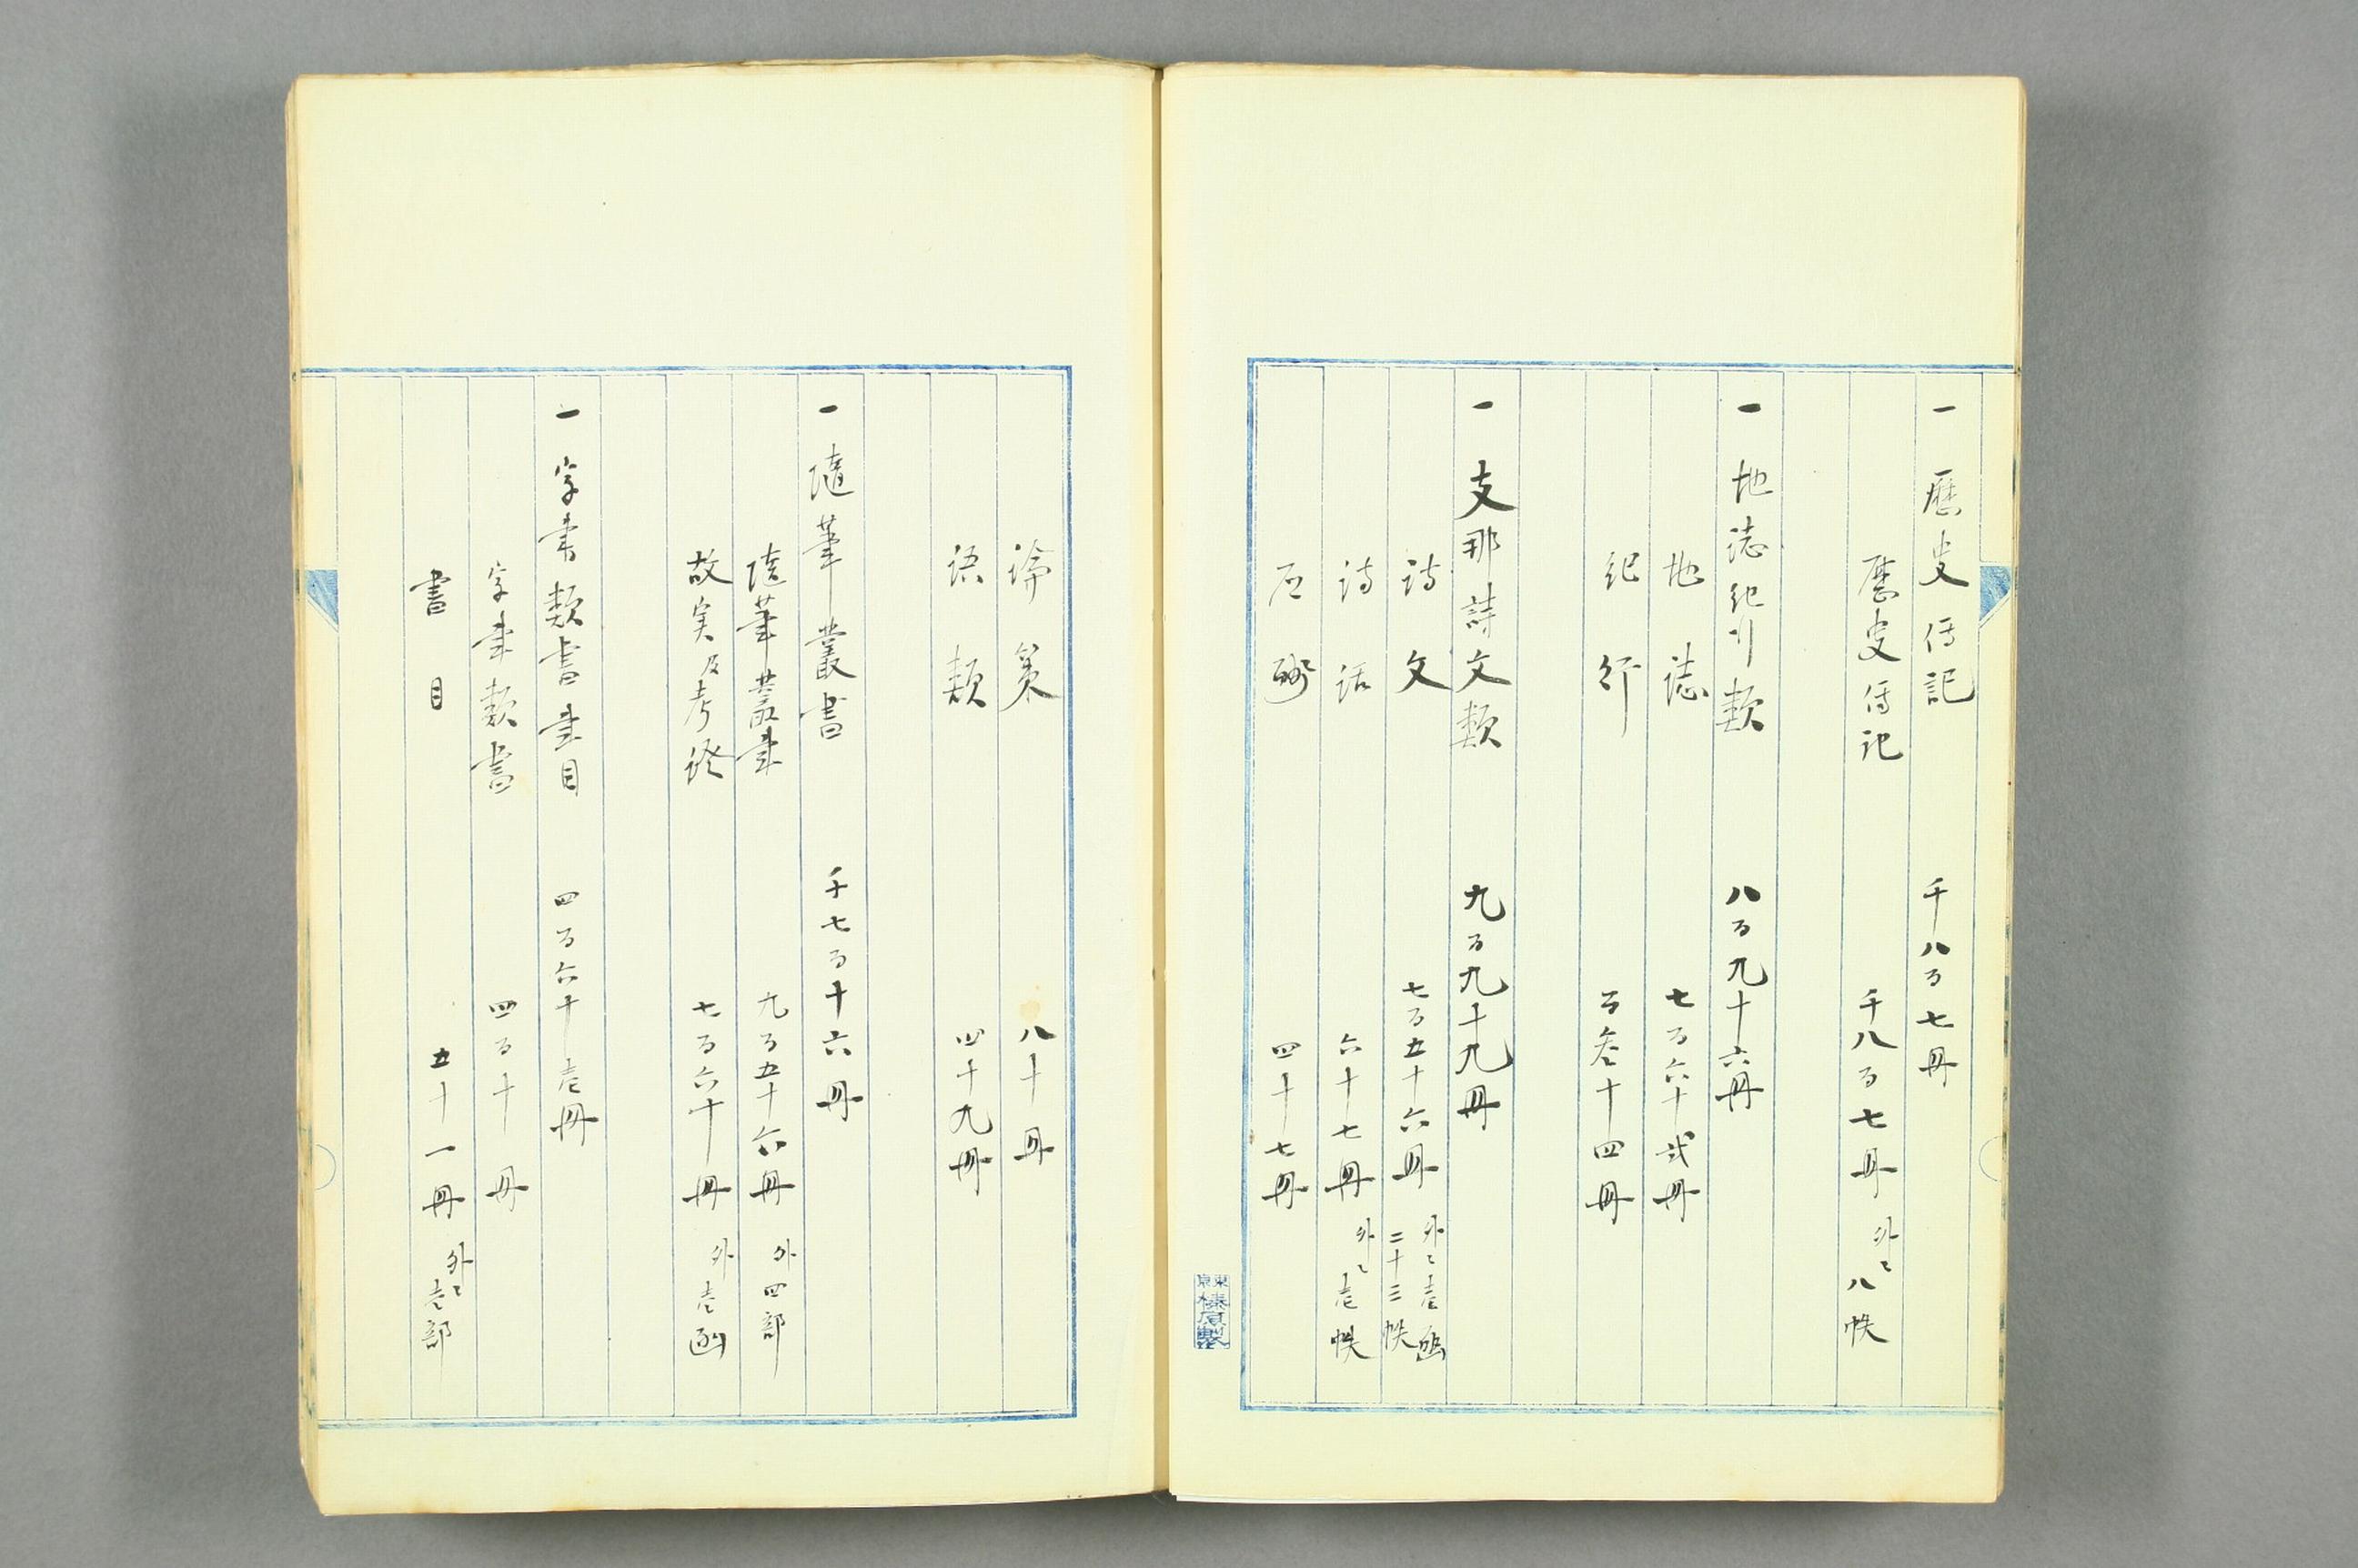 一 歴史伝記 千八百七冊
歴史伝記 千八百七冊 外ニ八帙
一 地誌紀行類 八百九十六冊
地誌 七百六十弐冊
紀行 百参十四冊
一 支那詩文類 九百九十九冊
詩文 七百五十六冊 外ニ壱凾 二十三帙
詩話 六十七冊 外ニ壱帙
四十七冊
八十冊
語類 四十九冊
一 随筆叢書 千七百十六冊
随筆叢書 九百五十六冊 外四部
故実及考證 七百六十冊 外壱凾
一 字書類書書目 四百六十壱冊
字書類書 四百十冊
書目 五十一冊 外ニ壱部
東京榛原製